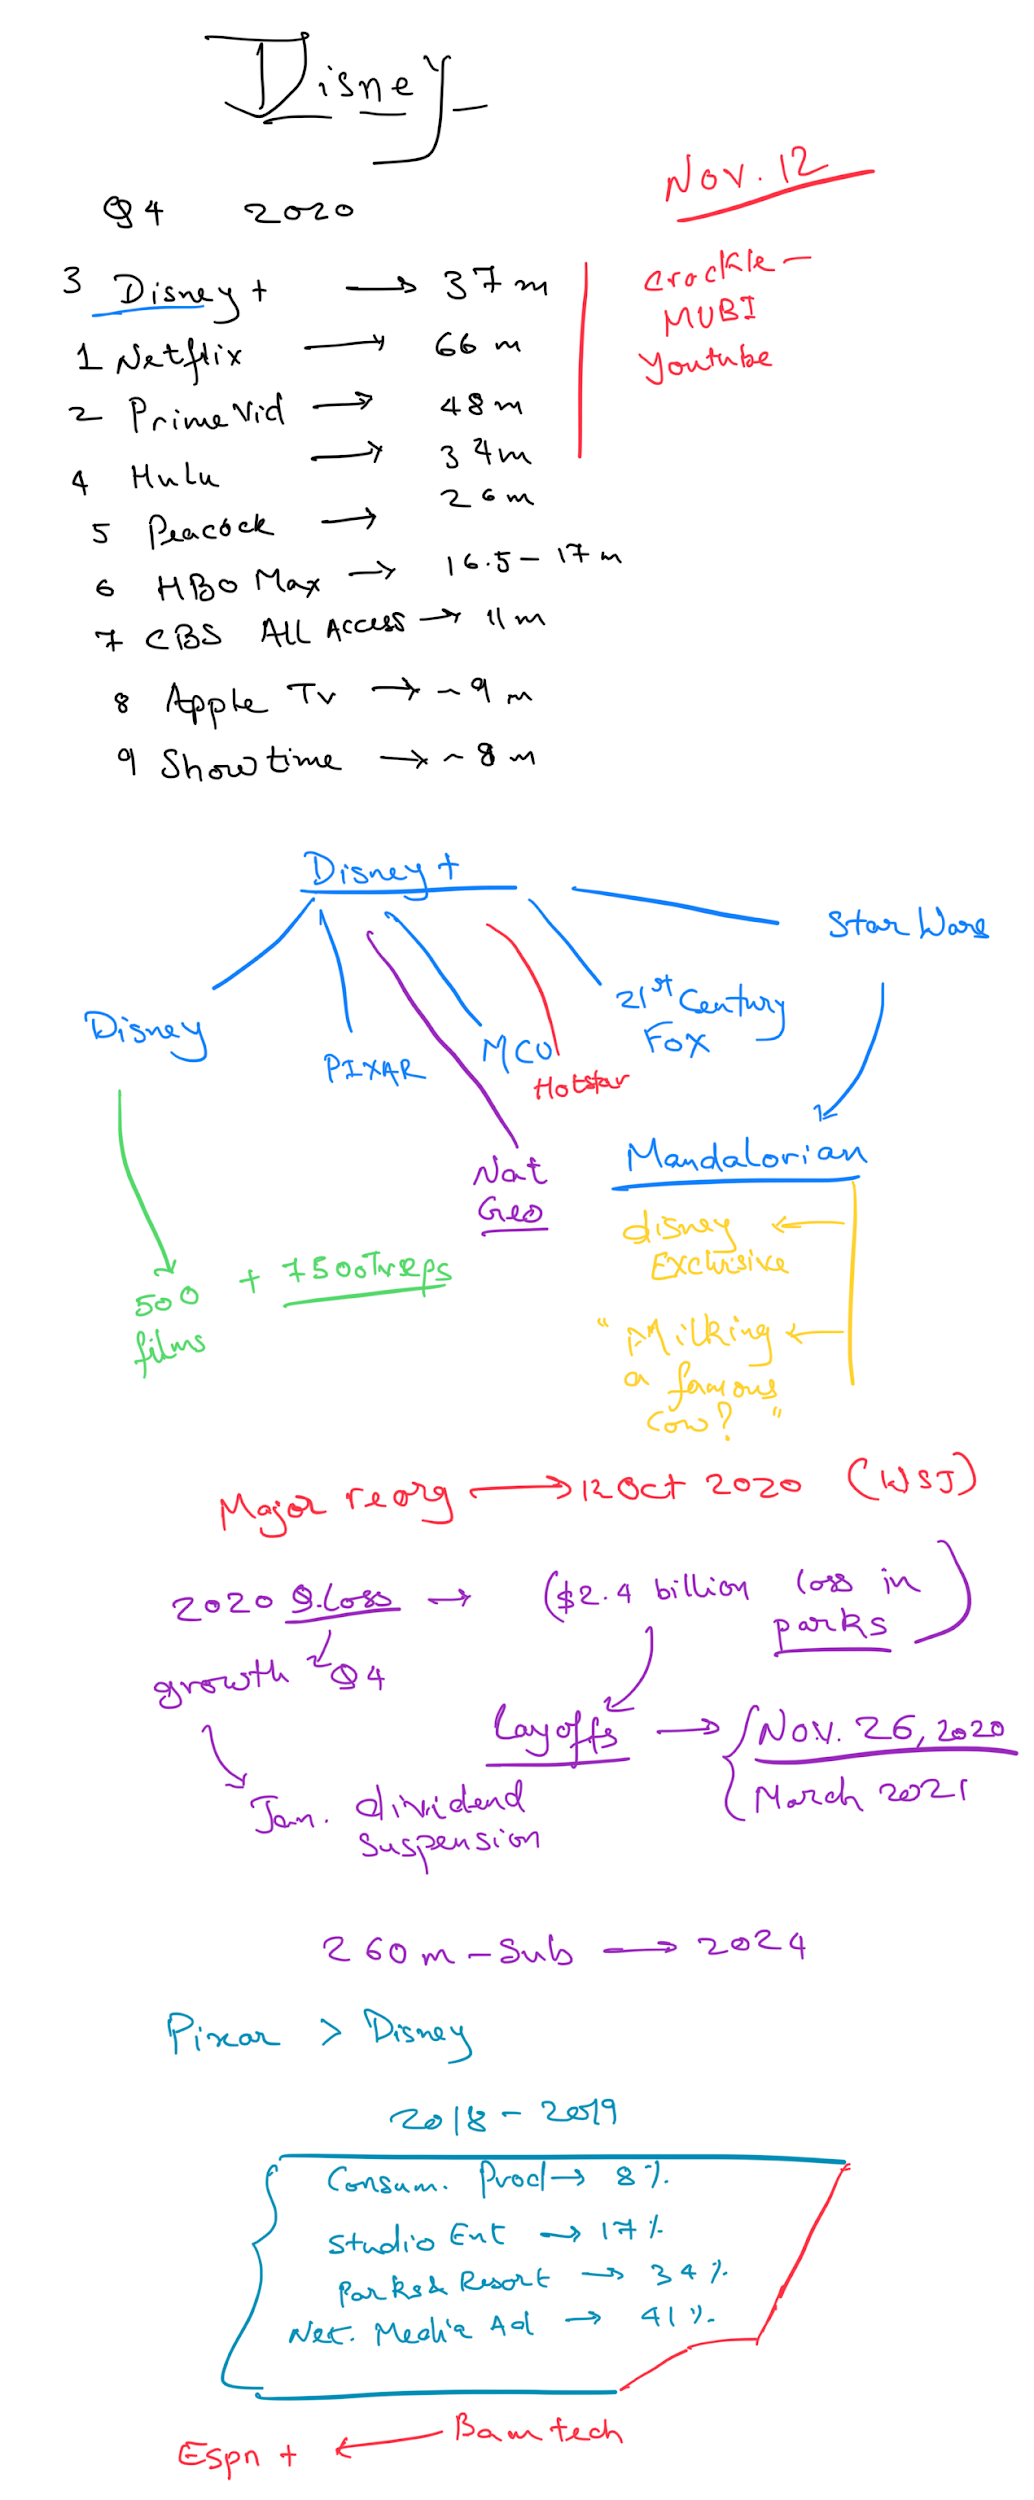 Disney
Nov. 12
Q4 2020
3 Disney+ → 37m
1 Netflix → 66m
2 Prime Vid → 48m
4 Hulu → 34m
5 Peacock → 26m
6 HBO Max → 16.5 – 17m
7 CBS All Access → 11m
8 Apple Tv → ~9m
9 Showtime → ~8m
crackle –
MUBI
youtube
Disney+
Star Wars
Disney
PIXAR
MCU
Hotstar
21st Century
Fox
Nat
Geo
Mandalorian
disney
Exclusive
"Milking
a famous
cow?"
500 + 7500 Tv eps
films
Major reorg → 12 Oct 2020 (WSJ)
2020 → ($2.4 billion loss in
parks)
growth Q4
Layoffs → Nov. 26, 2020
March 2021
Jan. dividend
suspension
260m – Sub → 2024
Pixar > Disney
2018 – 2019
Consum. Prod → 8%
Studio Ent → 17%
Parks & Resort → 34%
Net. Media Ad → 41%
Espn + ← Bamtech